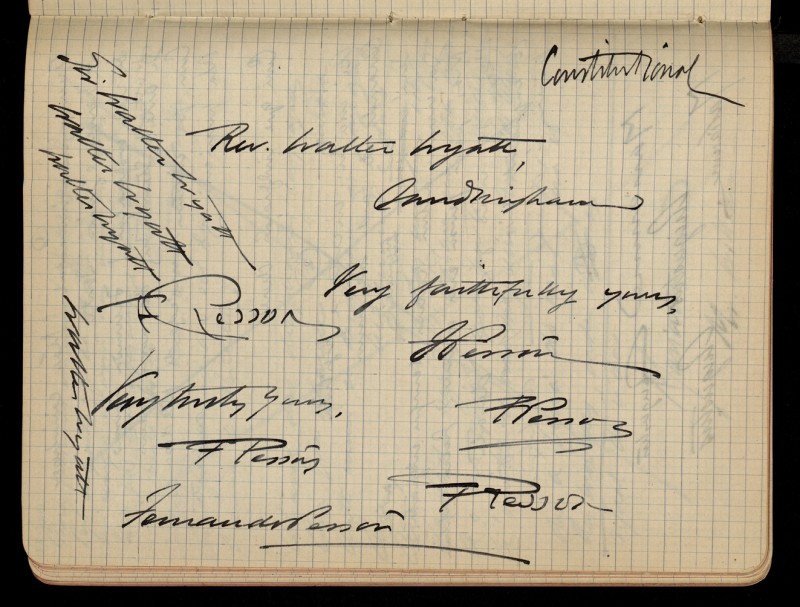 Constitutional
Rev. Walter Wyatt,
Sandringham
Sir Walter Wyatt
Walter Wyatt
Walter Wyatt
Walter Wyatt
Very faithfully yours,
Pessoa
FPessoa
Very truly yours,
F Pessôa
FPessoa
Fernando Pessôa